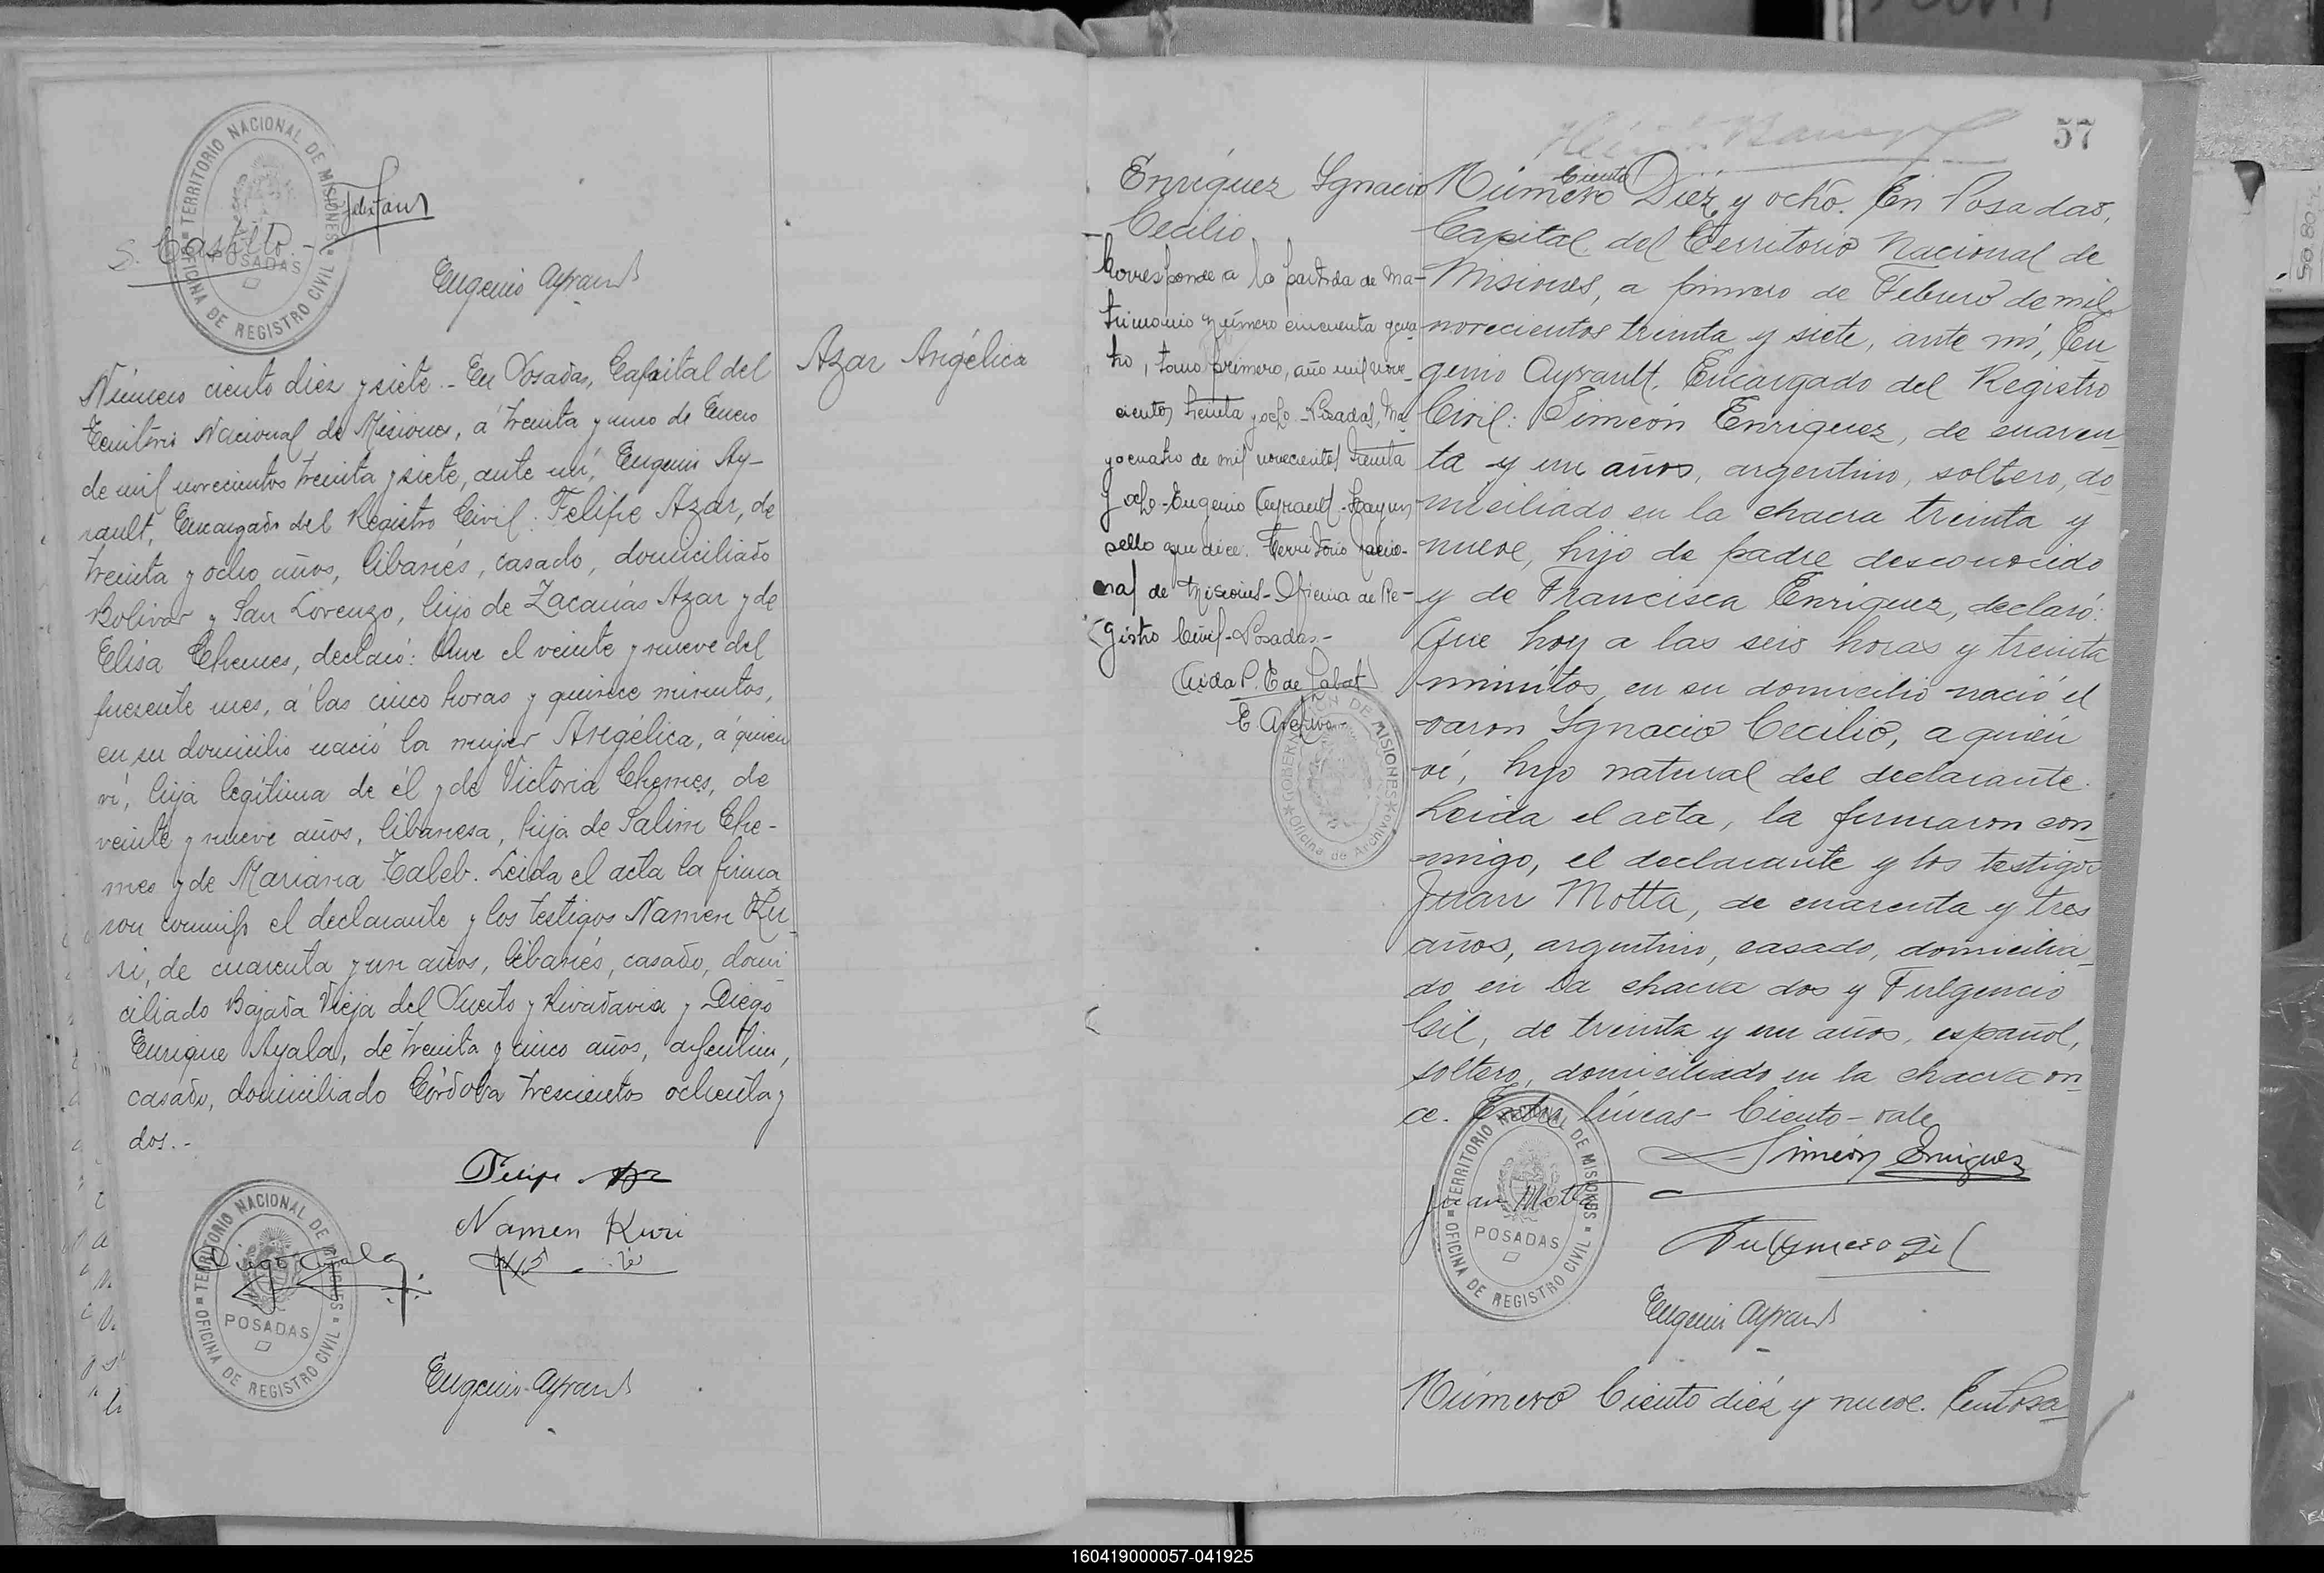 TERRITORIO NACIONAL DE MISIONES
OFICINA DE REGISTRO CIVIL
POSADAS
S. Castillo
Eugenio Ayrault
Azar Angélica
Número ciento diez y siete.- En Posadas, Capital del
Territorio Nacional de Misiones, á treinta y uno de Enero
de mil novecientos treinta y siete, ante mí, Eugenio Ay-
rault, Encargado del Registro Civil: Felipe Azar, de
treinta y ocho años, libanés, casado, domiciliado
Bolivar y San Lorenzo, hijo de Zacarías Azar y de
Elisa Chemes, declaró: Que el veinte y nueve del
presente mes, á las cinco horas y quince minutos,
en su domicilio nació la mujer Angélica, á quien
ví, hija legítima de él y de Victoria Chemes, de
veinte y nueve años, libanesa, hija de Salim Che-
mes y de Mariana Taleb. Leida el acta la firma
ron conmigo el declarante y los testigos Namen Ku-
ri, de cuarenta y un años, libanés, casado, domi
ciliado Bajada Vieja del Puerto y Rivadavia y Diego
Enrique Ayala, de treinta y cinco años, argentino,
casado, domiciliado Córdoba trescientos ochenta y
dos.-
Felipe
Namen Kuri
Diego Ayala
TERRITORIO NACIONAL DE MISIONES
OFICINA DE REGISTRO CIVIL
POSADAS
Eugenio Ayrault
57
Enriquez Ignacio
Cecilio
Corresponde a la partida de ma-
trimonio número cincuenta y cua
tro, tomo primero, año mil nove-
cientos treinta y ocho - Posadas, Ma-
yo cuatro de mil novecientos treinta
y ocho - Eugenio Ayrault - Hay un
sello que dice: Territorio Nacio-
nal de Misiones - Oficina de Re-
gistro Civil - Posadas -
Aida P. E de Labat
E. Archivo
GOBERNACION DE MISIONES
Oficina de Archivo
ciento
Número Diéz y ocho. En Posadas,
Capital del Territorio Nacional de
Misiones, a primero de Febrero de mil
novecientos treinta y siete, ante mí, Eu
genio Ayrault, Encargado del Registro
Civil: Simeón Enriquez, de cuaren-
ta y un años, argentino, soltero, do-
miciliado en la chacra treinta y
nueve, hijo de padre desconocido
y de Francisca Enriquez, declaró:
Que hoy a las seis horas y treinta
minutos, en su domicilio nació el
varon Ignacio Cecilio, a quién
ví, hijo natural del declarante.
Leida el acta, la firmaron con-
migo, el declarante y los testigos
Juan Motta, de cuarenta y tres
años, argentino, casado, domicilia-
do en la chacra dos y Fulgencio
Gil, de treinta y un años, español,
soltero, domiciliado en la chacra on-
ce. Entre líneas - Ciento - vale
Simeón Enriquez
Juan Motta
TERRITORIO NACIONAL DE MISIONES
OFICINA DE REGISTRO CIVIL
POSADAS
Fulgencio Gil
Eugenio Ayrault
Número Ciento diéz y nueve. En Posa-
160419000057-041925